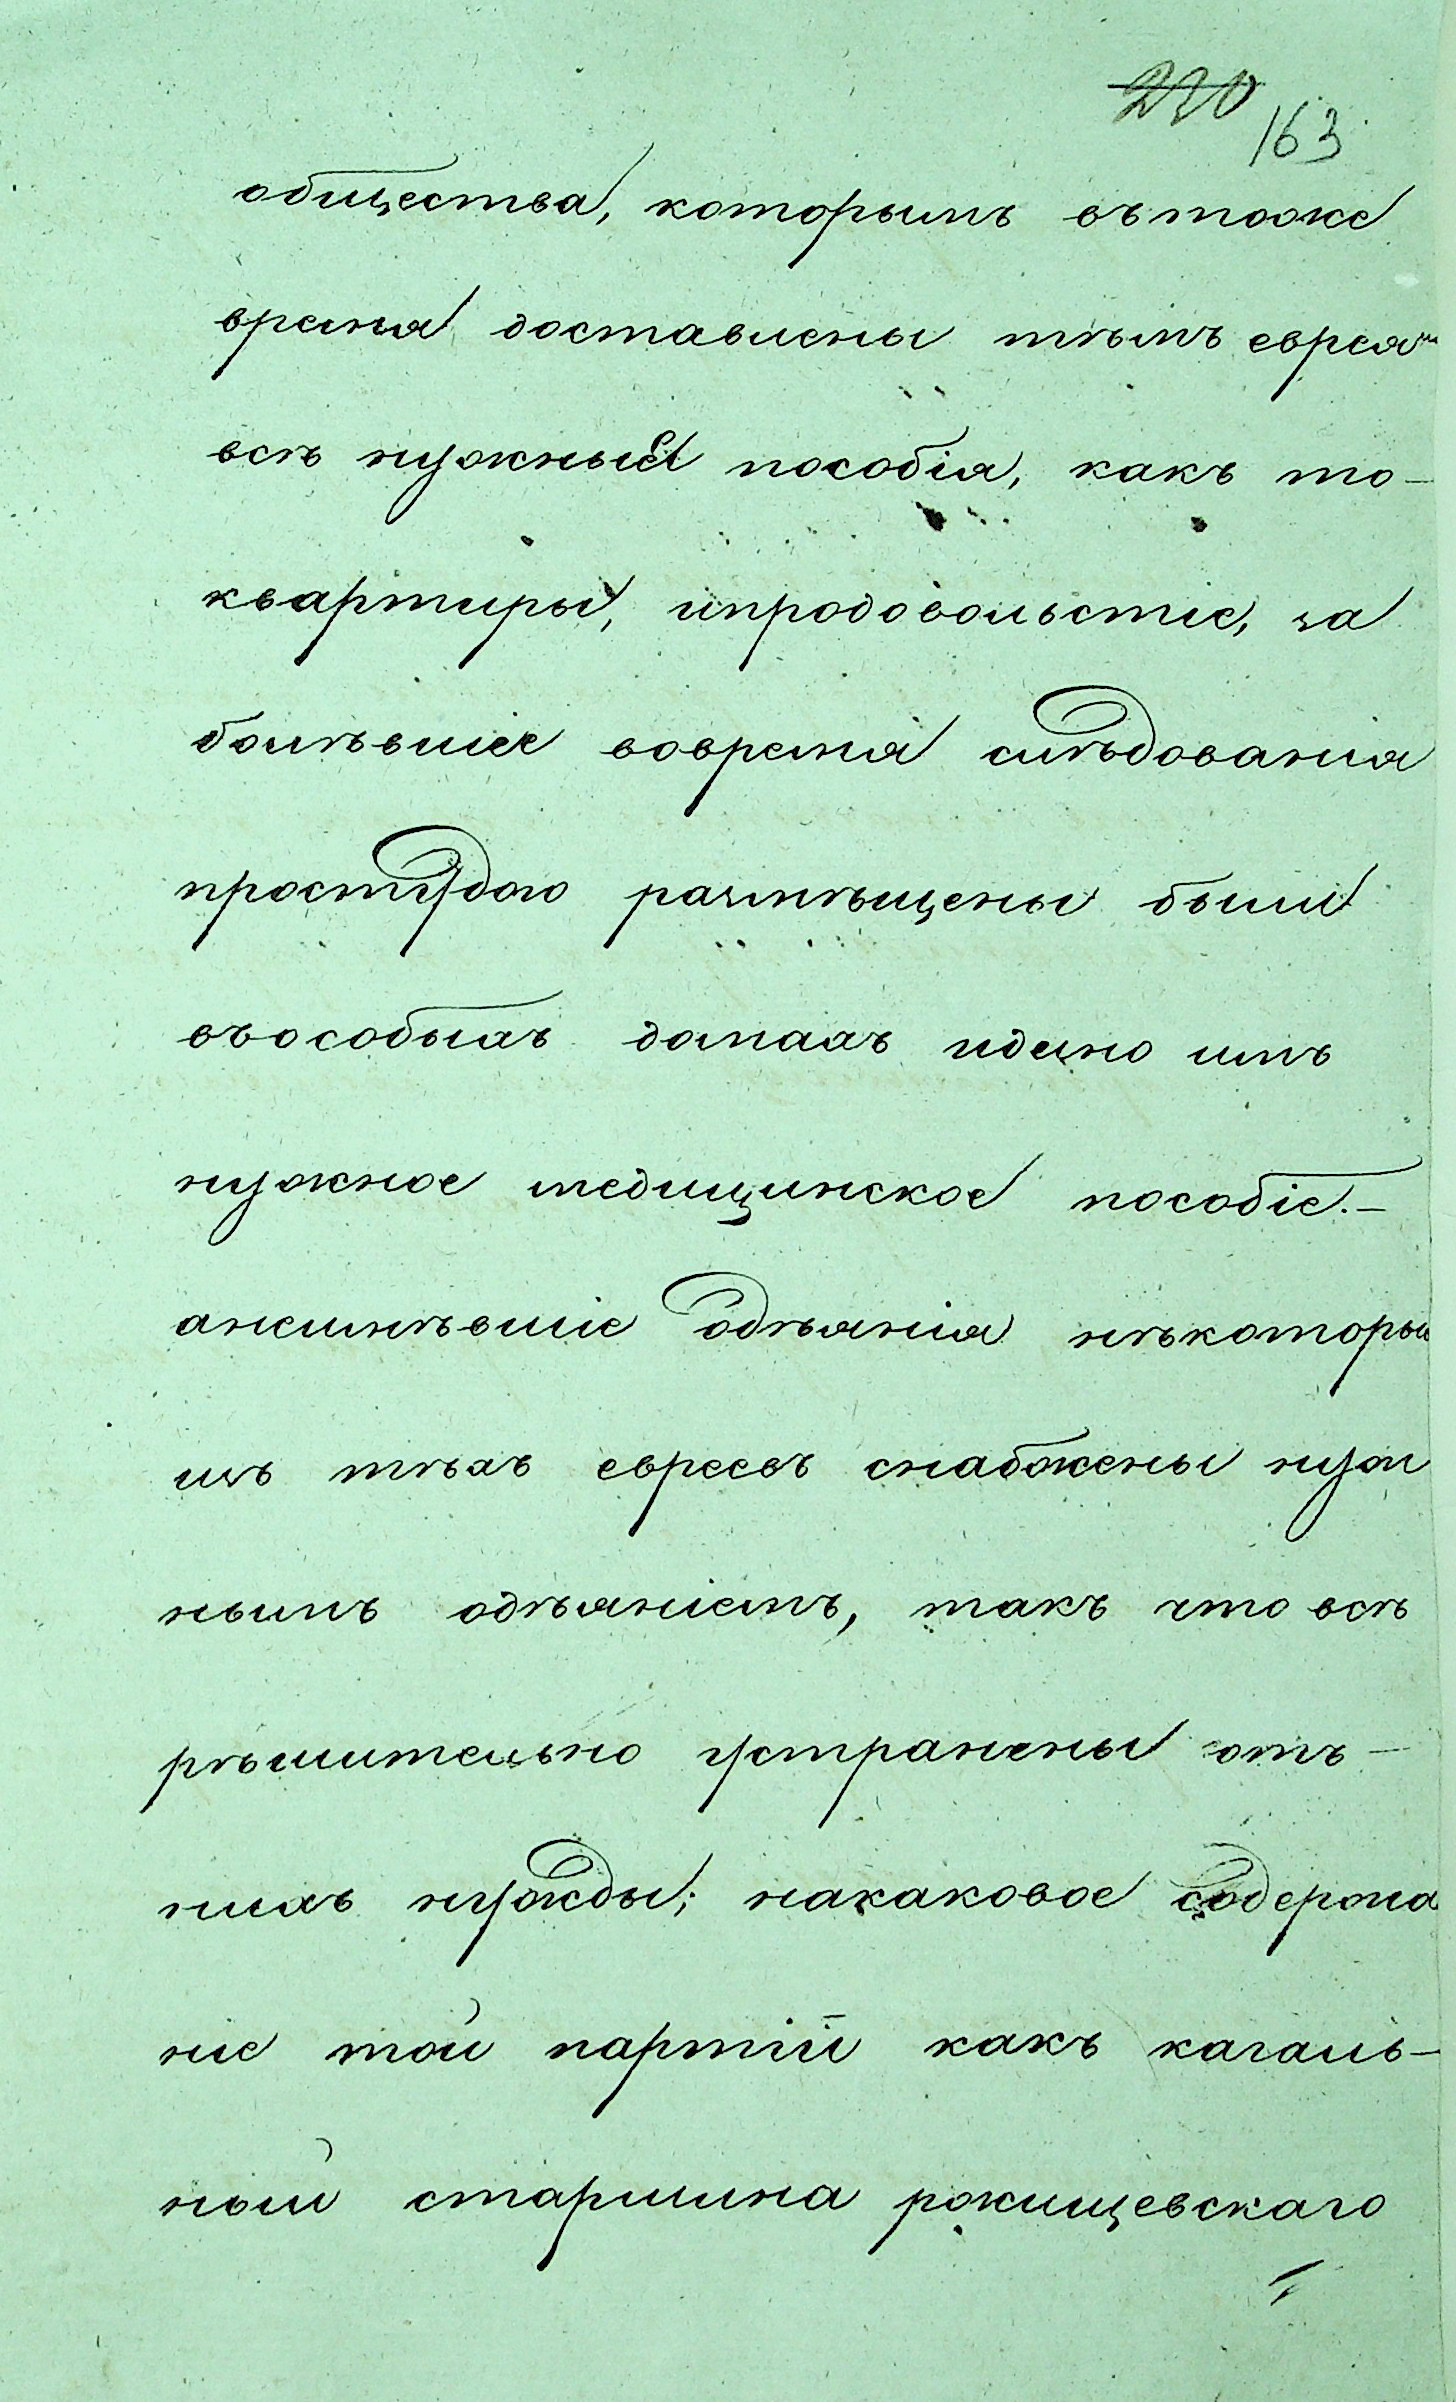 220
163
общества, которымъ въ тоже
время доставлены тѣмъ еврея
всѣ нужныя пособія, какъ то-
квартиры, ипродовольстіе, за
болѣвшіе вовремя слѣдованія
простудою размѣщены были
въособыхъ домахъ идано имъ
нужное медицинское пособіе.-
анеимѣвшіе одѣянія нѣкоторы
изъ тѣхъ евреевъ снабжены нуж
нымъ одѣяніемъ, такъ что всѣ
рѣшительно устранены отъ-
нихъ нужды; накаковое содержа
ніе той партіи какъ кагаль-
ный старшина рожищевскаго